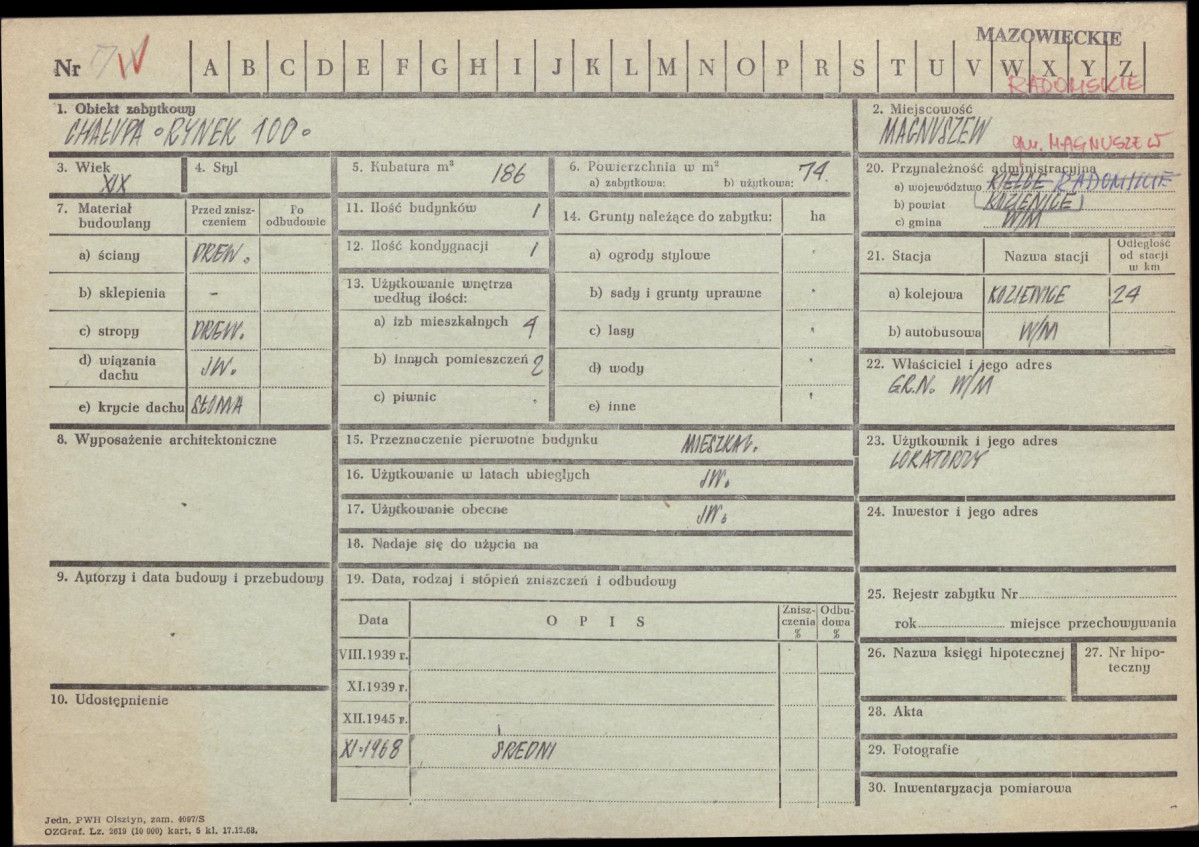 MAZOWIECKIE
Nr IV A B C D E F G H I J K L M N O P R S T U V W X Y Z
RADOMSKIE
1. Obiekt zabytkowy
CHAŁUPA • RYNEK 100 •
2. Miejscowość
MAGNUSZEW
gm. MAGNUSZEW
3. Wiek
XIX
4. Styl
5. Kubatura m³ 186
6. Powierzchnia w m² 74.
a) zabytkowa: b) użytkowa:
20. Przynależność administracyjna
a) województwo KIELCE RADOMSKIE
b) powiat (KOZIENICE)
c) gmina W/M
7. Materiał budowlany
Przed zniszczeniem
Po odbudowie
a) ściany DREW.
b) sklepienia -
c) stropy DREW.
d) wiązania dachu JW.
e) krycie dachu SŁOMA
11. Ilość budynków 1
12. Ilość kondygnacji 1
13. Użytkowanie wnętrza
według ilości:
a) izb mieszkalnych 4
b) innych pomieszczeń 2
c) piwnic .
14. Grunty należące do zabytku: ha
a) ogrody stylowe
b) sady i grunty uprawne
c) lasy
d) wody
e) inne
21. Stacja
Nazwa stacji
Odległość
od stacji
w km
a) kolejowa KOZIENICE 24
b) autobusowa W/M
22. Właściciel i jego adres
GR.N. W/M
8. Wyposażenie architektoniczne
15. Przeznaczenie pierwotne budynku MIESZKAL.
16. Użytkowanie w latach ubiegłych JW.
17. Użytkowanie obecne JW.
18. Nadaje się do użycia na
23. Użytkownik i jego adres
LOKATORZY
24. Inwestor i jego adres
9. Autorzy i data budowy i przebudowy
19. Data, rodzaj i stopień zniszczeń i odbudowy
Data
O P I S
Zniszczenia %
Odbudowa %
VIII.1939 r.
XI.1939 r.
XII.1945 r.
XI.1968 ŚREDNI
25. Rejestr zabytku Nr
rok miejsce przechowywania
26. Nazwa księgi hipotecznej
27. Nr hipoteczny
10. Udostępnienie
28. Akta
29. Fotografie
30. Inwentaryzacja pomiarowa
Jedn. PWH Olsztyn, zam. 4097/S
OZGraf. Lz. 2619 (10 000) kart. 5 kl. 17.12.68.